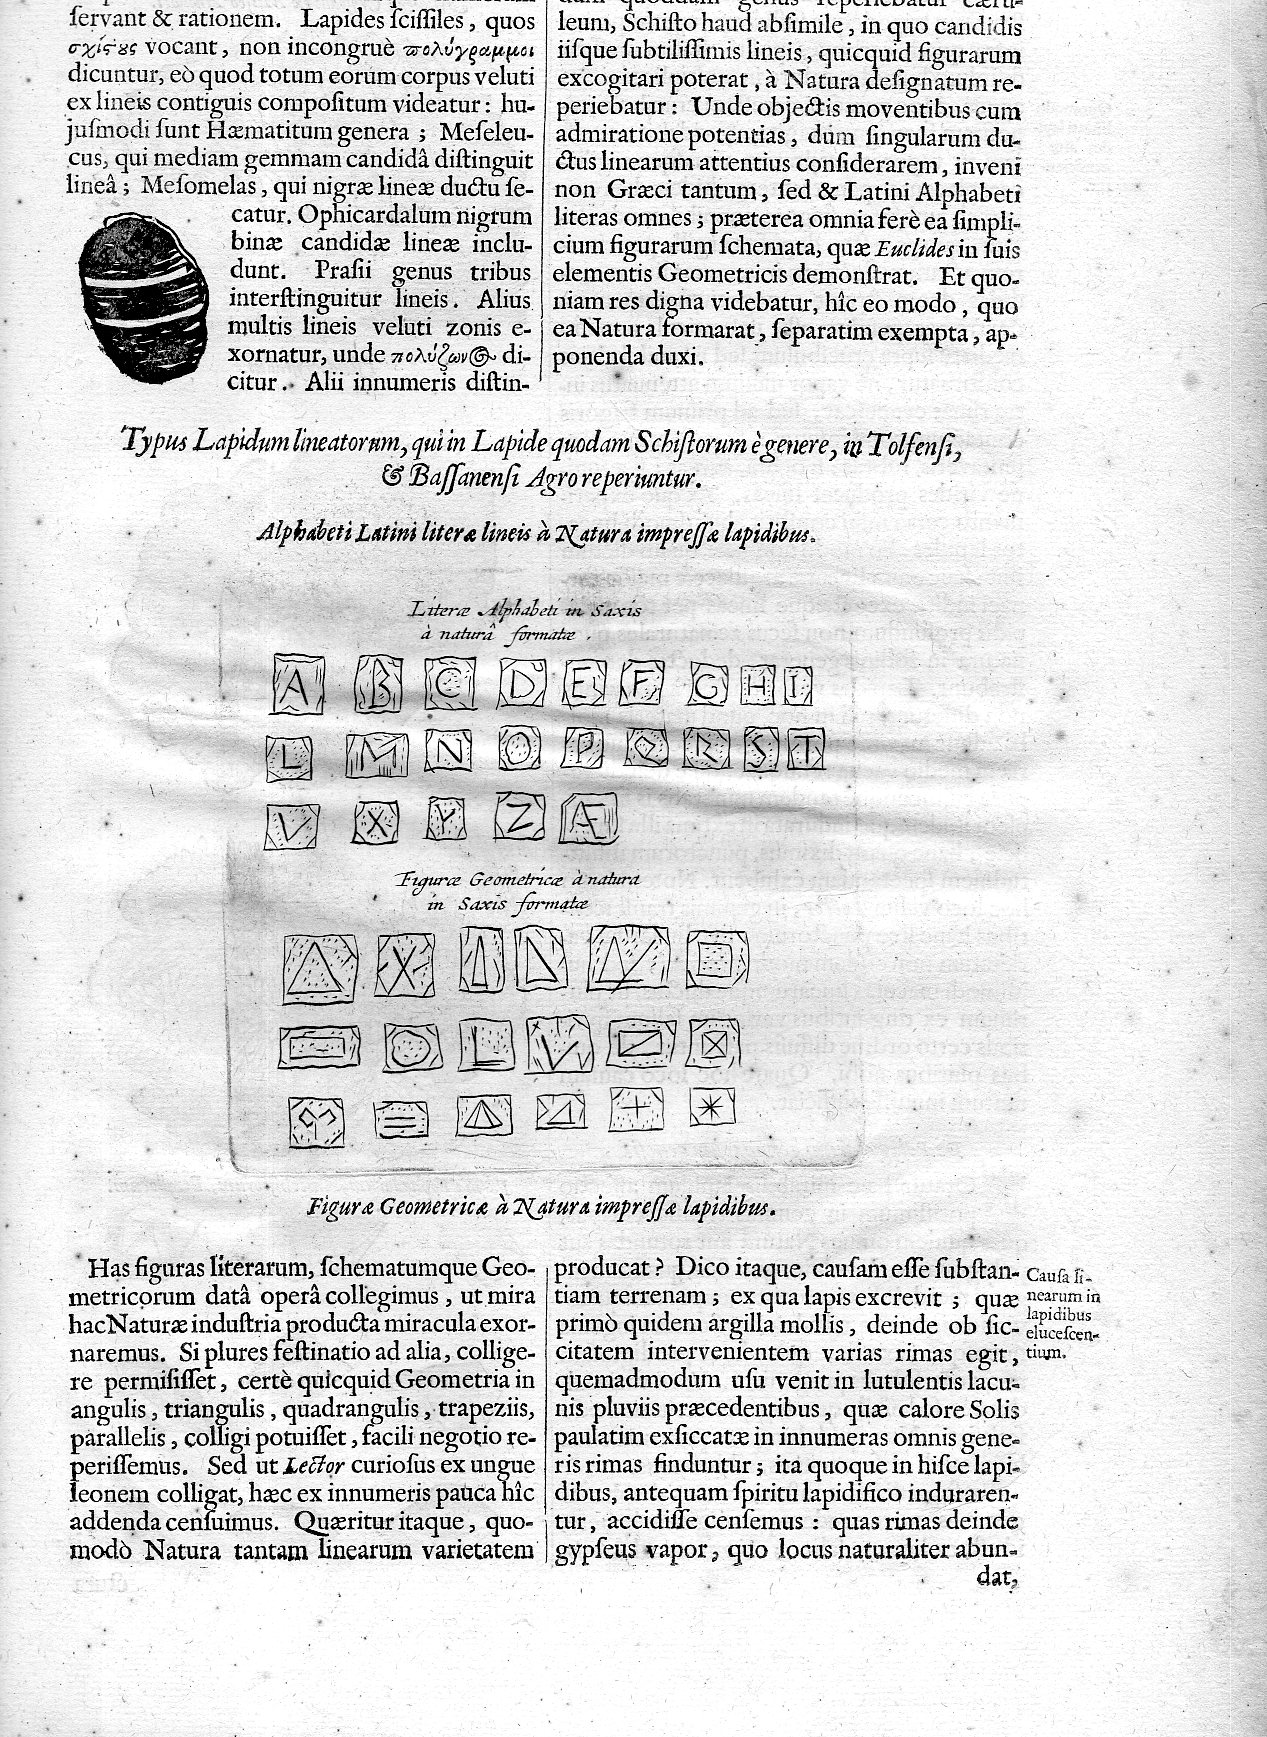 servant & rationem. Lapides scissiles, quos
vocant, non incongruè πολύγραμμοι
dicuntur, eò quod totum eorum corpus veluti
ex lineis contiguis compositum videatur: hu-
jusmodi sunt Hæmatitum genera; Meseleu-
cus, qui mediam gemmam candidâ distinguit
lineâ; Mesomelas, qui nigræ lineæ ductu se-
catur. Ophicardalum nigrum
binæ candidæ lineæ inclu-
dunt. Prasii genus tribus
interstinguitur lineis. Alius
multis lineis veluti zonis e-
xornatur, unde πολύζων di-
citur. Alii innumeris distin-
leum, Schisto haud absimile, in quo candidis
iisque subtilissimis lineis, quicquid figurarum
excogitari poterat, à Natura designatum re-
periebatur: Unde objectis moventibus cum
admiratione potentias, dum singularum du-
ctus linearum attentius considerarem, inveni
non Græci tantum, sed & Latini Alphabeti
literas omnes; præterea omnia ferè ea simpli-
cium figurarum schemata, quæ Euclides in suis
elementis Geometricis demonstrat. Et quo-
niam res digna videbatur, hîc eo modo, quo
ea Natura formarat, separatim exempta, ap-
ponenda duxi.
Typus Lapidum lineatorum, qui in Lapide quodam Schistorum è genere, in Tolfensi,
& Bassanensi Agro reperiuntur.
Alphabeti Latini literæ lineis à Natura impressæ lapidibus.
Literæ Alphabeti in Saxis
à naturâ formatæ.
A B C D E F G H I
L M N O P Q R S T
V X Y Z Æ
Figuræ Geometricæ à natura
in Saxis formatæ
Figuræ Geometricæ à Natura impressæ lapidibus.
Has figuras literarum, schematumque Geo-
metricorum datâ operâ collegimus, ut mira
hac Naturæ industria producta miracula exor-
naremus. Si plures festinatio ad alia, collige-
re permisisset, certè quicquid Geometria in
angulis, triangulis, quadrangulis, trapeziis,
parallelis, colligi potuisset, facili negotio re-
perissemus. Sed ut Lector curiosus ex ungue
leonem colligat, hæc ex innumeris pauca hîc
addenda censuimus. Quæritur itaque, quo-
modò Natura tantam linearum varietatem
producat? Dico itaque, causam esse substan-
tiam terrenam; ex qua lapis excrevit; quæ
primò quidem argilla mollis, deinde ob sic-
citatem intervenientem varias rimas egit,
quemadmodum usu venit in lutulentis lacu-
nis pluviis præcedentibus, quæ calore Solis
paulatim exsiccatæ in innumeras omnis gene-
ris rimas finduntur; ita quoque in hisce lapi-
dibus, antequam spiritu lapidifico induraren-
tur, accidisse censemus: quas rimas deinde
gypseus vapor, quo locus naturaliter abun-
dat,
Causa li-
nearum in
lapidibus
elucescen-
tium.